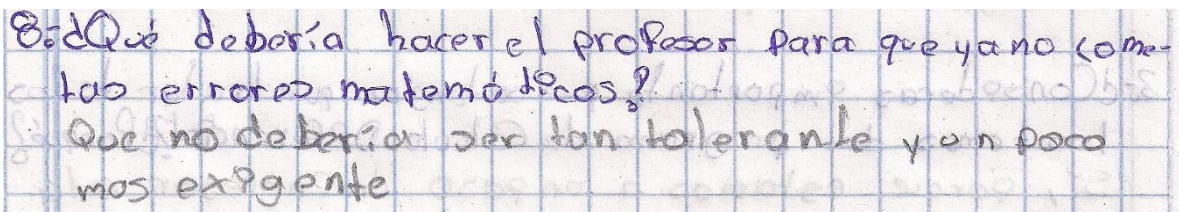 8.-¿Qué debería hacer el profesor para que ya no come-
tas errores matemáticos?
Que no debería ser tan tolerante y un poco
mas exigente